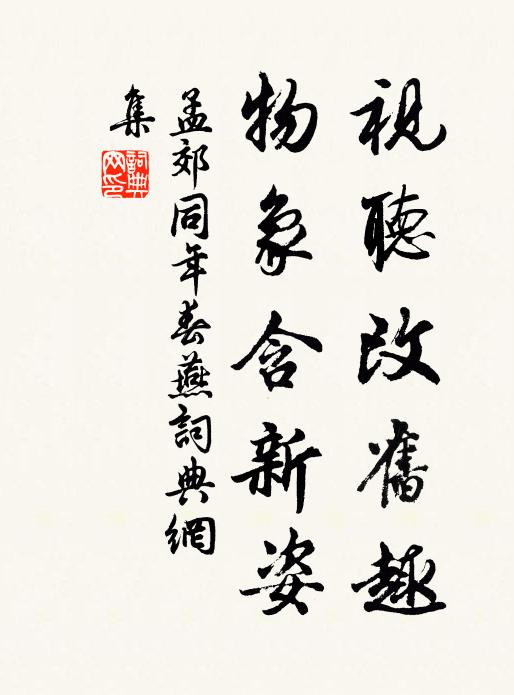 視聽改舊趣
物象含新姿
孟郊同年春燕詞典網
集
詞典網印